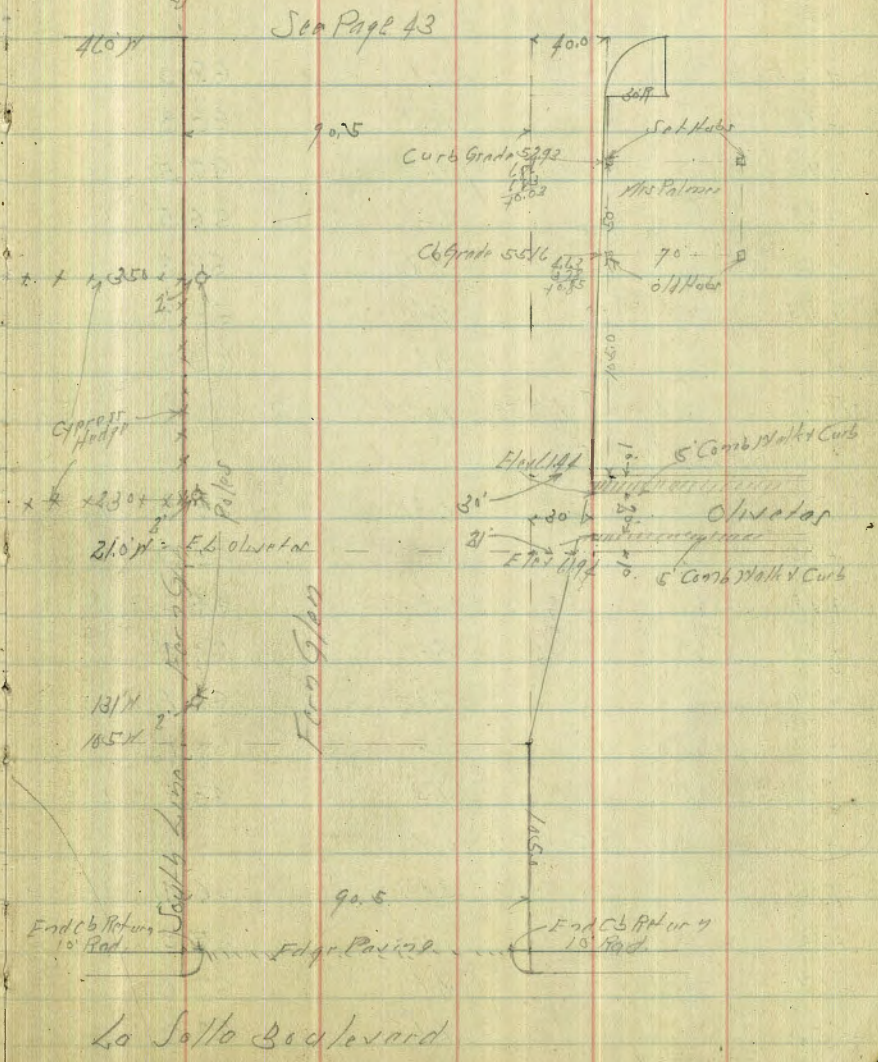 See Page 43
460 W
40.0
30 R
90.5
Set Hubs
Curb Grade 5293
+0.03
Mrs Palmer
50
Cb Grade 5516
4.63
+0.85
70
old Hubs
350
2'
105.0
Cypress
Hedge
Poles
Elev 6194
10
5' Comb Walk & Curb
230
2'
30'
30
Olivetas
21.0 W = E L Olivetas
21'
Elev 6194
10
5' Comb Walk & Curb
Fern Glen
Fern Glen
131 W
2'
105 W
South Line
105.0
90.5
End Cb Return
10' Rad.
Edge Paving
End Cb Return
10' Rad.
La Jolla Boulevard